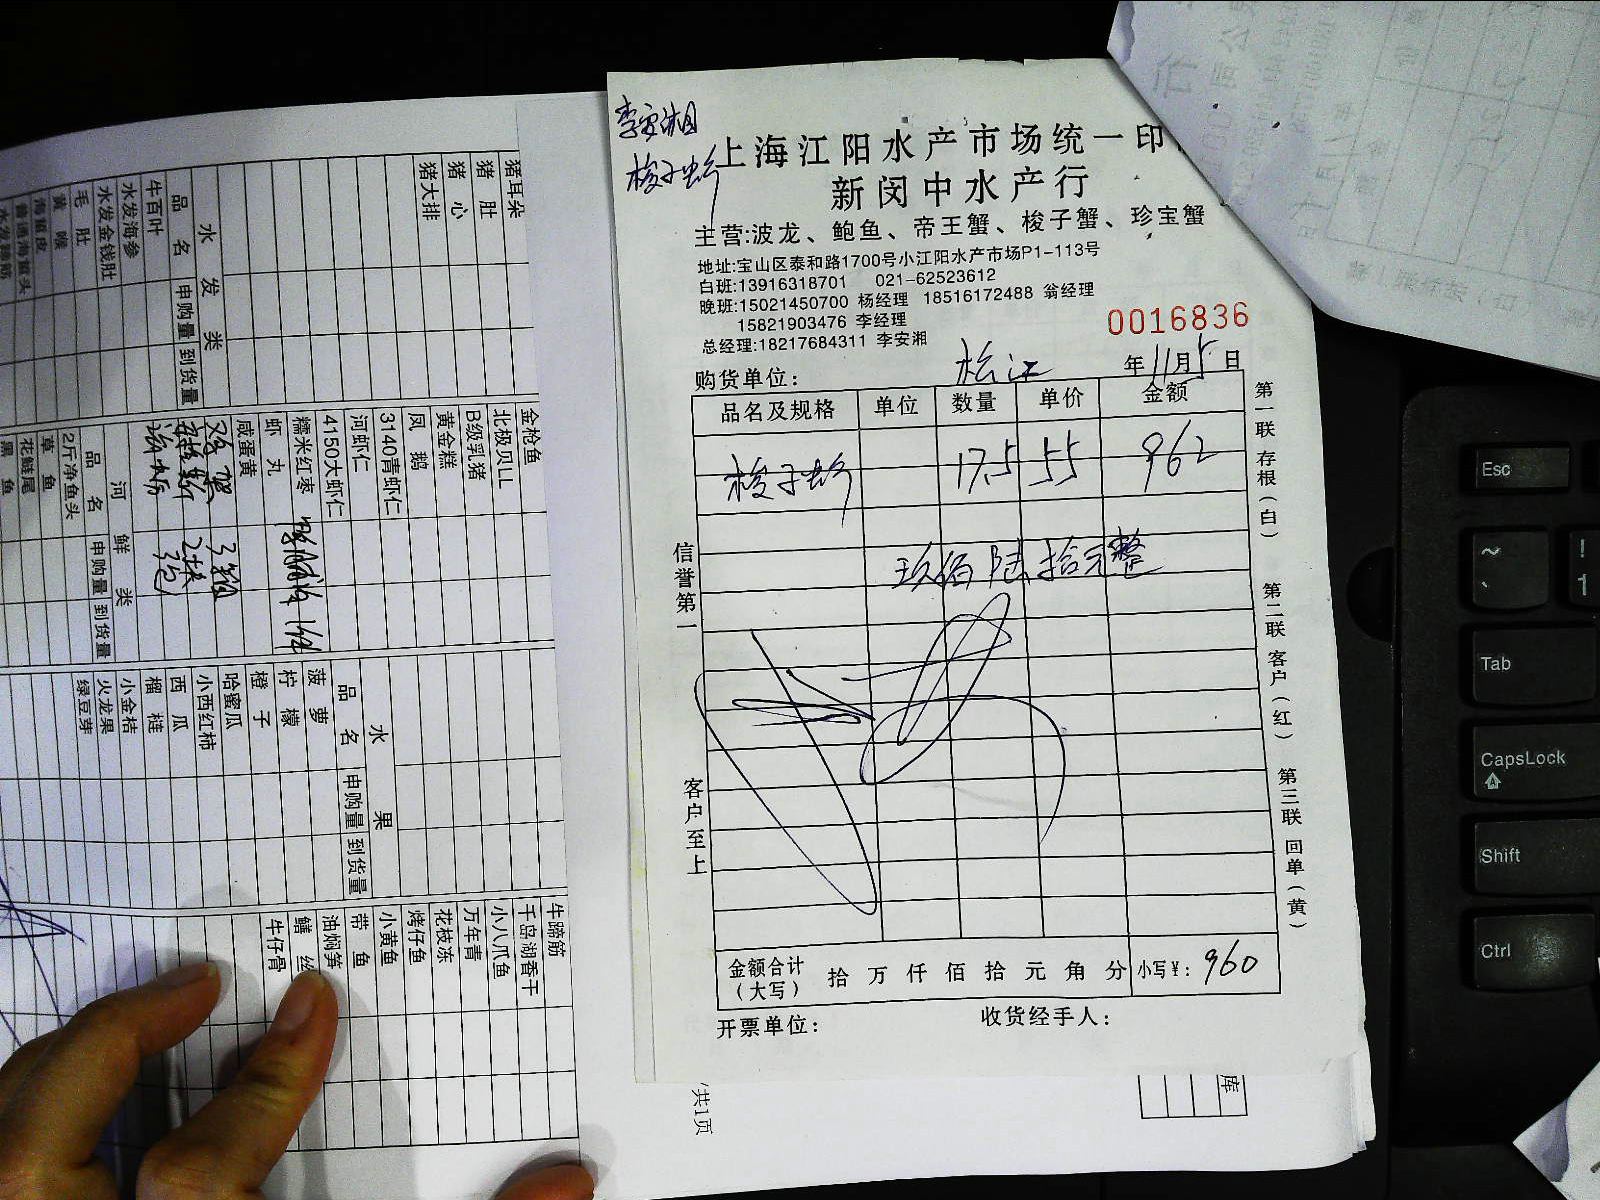 李安湘
梭子蟹
上海江阳水产市场统一印
新闵中水产行
主营:波龙、鲍鱼、帝王蟹、梭子蟹、珍宝蟹
地址:宝山区泰和路1700号小江阳水产市场P1-113号
白班:13916318701 021-62523612
晚班:15021450700 杨经理 18516172488 翁经理
15821903476 李经理
总经理:18217684311 李安湘
0016836
购货单位: 松江 年11月5日
品名及规格 单位 数量 单价 金额
梭子蟹 17.5 55 962
玖佰陆拾元整
金额合计(大写) 拾 万 仟 佰 拾 元 角 分 小写¥: 960
开票单位: 收货经手人:
信誉第一
客户至上
第一联 存根(白)
第二联 客户(红)
第三联 回单(黄)
共1页
库
猪耳朵
猪肚
猪心
猪大排
水发类
品名 申购量 到货量
牛百叶
水发海参
水发金钱肚
毛肚
黄喉
海蜇皮
金枪鱼
北极贝LL
B级乳猪
黄金糕
凤鹅
3140青虾仁
河虾仁
4150大虾仁
糯米红枣
虾丸
咸蛋黄
河鲜类
品名 申购量 到货量
2斤净鱼头
草鱼
花鲢尾
黑鱼
水果
品名 申购量 到货量
菠萝
柠檬
橙子
哈蜜瓜
小西红柿
西瓜
榴梿
小金桔
火龙果
绿豆芽
牛蹄筋
千岛湖香干
小八爪鱼
万年青
花枝冻
烤仔鱼
小黄鱼
带鱼
油焖笋
鳝丝
牛仔骨
Esc
~
!
1
Tab
CapsLock
Shift
Ctrl